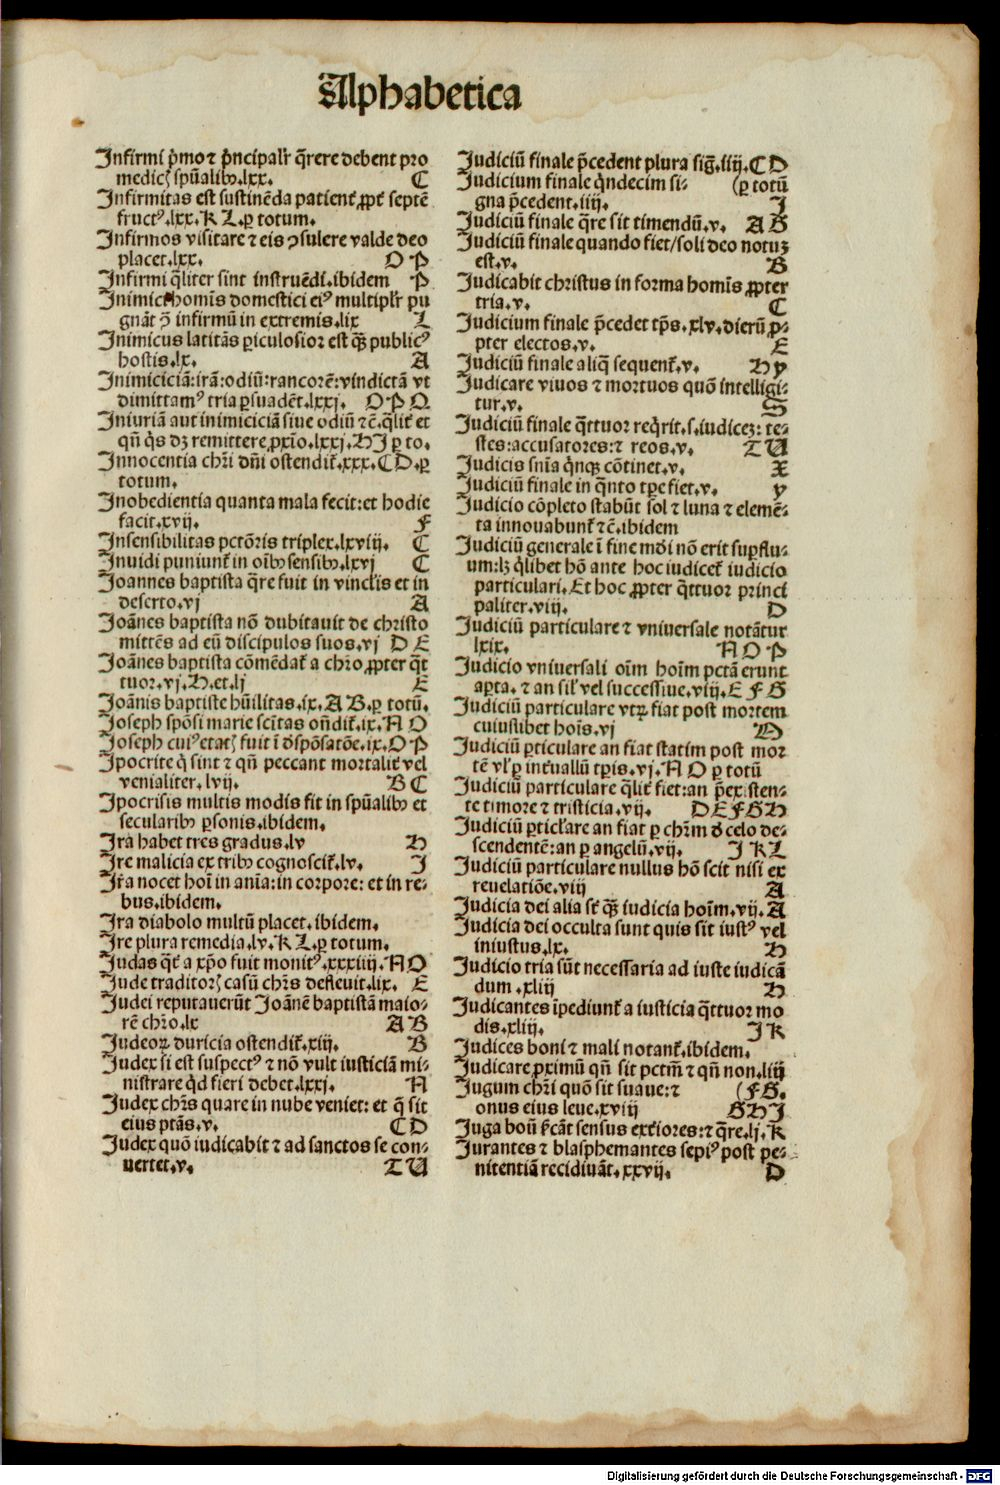 Alphabetica
Infirmi p̄mo ⁊ p̄ncipalr̄ q̄rere debent pro
medicꝭ spūalibꝰ.lxx. C
Infirmitas est sustinēda patient᷑ ꝓpt᷑ septē
fructꝰ.lxx.K L.ꝑ totum.
Infirmos visitare ⁊ eis ꝯsulere valde deo
placet.lxx. O P
Infirmi q̄liter sint instruēdi.ibidem P
Inimicꝭ homīs domestici eiꝰ multiplr̄ pu
gnāt ꝯ̄ infirmū in extremis.lix L
Inimicus latitās ꝑiculosior est qꝫ̄ publicꝰ
hostis.lx. A
Inimiciciā:irā:odiū:rancorē:vindictā vt
dimittamꝰ tria ꝑsuadēt.lxxj. O P Q
Iniuriā aut inimiciciā siue odiū ⁊c̄.q̄lit᷑ et
qn̄ q̇s dꝫ remittere ꝓxīo.lxxj.H I ꝑ to.
Innocentia chr̄i dn̄i ostendit᷑.xxx.C D.ꝑ
totum.
Inobedientia quanta mala fecit:et hodie
facit.xvij. F
Insensibilitas pctōris triplex.lxviij. C
Inuidi puniunt᷑ in oībꝰ sensibꝰ.lxvj C
Joannes baptista q̄re fuit in vinclis et in
deserto.vj A
Joānes baptista nō dubitauit de christo
mittēs ad eū discipulos suos.vj D E
Joānes baptista cōmēdat᷑ a chr̄o ꝓpter q̄t
tuor.vj.H.et.lj E
Joānis baptiste hūilitas.ix.A B.ꝑ totū.
Joseph spōsi marie scītas on̄dit᷑.ix.N O
Joseph cuiꝰ etatꝭ fuit ī dspōsatōe.ix.O P
Ipocrite q̇ sint ⁊ qn̄ peccant mortalit᷑ vel
venialiter.lvij. B C
Ipocrisis multis modis fit in spūalibꝰ et
secularibꝰ ꝑsonis.ibidem.
Ira habet tres gradus.lv H
Ire malicia ex tribꝰ cognoscit᷑.lv. I
Ira nocet hoī in anīa:in corpore: et in re-
bus.ibidem.
Ira diabolo multū placet.ibidem.
Ire plura remedia.lv.K L.ꝑ totum.
Judas q̄t᷑ a xp̄o fuit monitꝰ.xxxiiij.N O
Jude traditorꝭ casū chr̄s defleuit.lix. E
Judei reputauerūt Joānē baptistā maio-
rē chr̄o.lx A B
Judeoꝝ duricia ostendit᷑.xiij. B
Judex si est suspectꝰ ⁊ nō vult iusticiā mi-
nistrare q̇d fieri debet.lxxj. N
Judex chr̄s quare in nube veniet: et q̄ sit
eius ptās.v. C D
Judex quō iudicabit ⁊ ad sanctos se con-
uertet.v. T U
Judiciū finale p̄cedent plura siḡ.iiij.C D
Judicium finale q̇ndecim si- (ꝑ totū
gna p̄cedent.iiij. I
Judiciū finale q̄re sit timendū.v. A B
Judiciū finale quando fiet/soli deo notuꝫ
est.v. B
Judicabit christus in forma homīs ꝓpter
tria.v. C
Judicium finale p̄cedet tp̄s.xlv.dierū ꝓ-
pter electos.v. E
Judiciū finale aliq̄ sequent᷑.v. H y
Judicare viuos ⁊ mortuos quō intelligi-
tur.v. S
Judiciū finale q̄ttuor req̇rit.s.iudiceꝫ: te-
stes:accusatores:⁊ reos.v. T U
Judicis sn̄ia q̇nqꝫ cōtinet.v. X
Judiciū finale in q̄nto tꝑe fiet.v. y
Judicio cōpleto stabūt sol ⁊ luna ⁊ elemē-
ta innouabunt᷑ ⁊c̄.ibidem
Judiciū generale ī fine mōi nō erit suꝑflu-
um:lꝫ q̇libet hō ante hoc iudicet᷑ iudicio
particulari.Et hoc ꝓpter q̄ttuor princi
paliter.viij. D
Judiciū particulare ⁊ vniuersale notātur
lxix. N O P
Judicio vniuersali oīm hoīm pctā erunt
aꝑta.⁊ an sil̄ vel successiue.viij.E F G
Judiciū particulare vtꝝ fiat post mortem
cuiuslibet hoīs.vj M
Judiciū ꝑticulare an fiat statim post mor
tē vl̓ ꝑ int᷑uallū tꝑis.vj.N O ꝑ totū
Judiciū particulare q̄lit᷑ fiet:an p̄existen-
te timore ⁊ tristicia.vij. D E F G H
Judiciū ꝑticlare an fiat ꝑ chr̄m d celo de-
scendentē:an ꝑ angelū.vij. I K L
Judiciū particulare nullus hō scit nisi ex
reuelatiōe.viij A
Judicia dei alia st̄ qꝫ̄ iudicia hoīm.vij.A
Judicia dei occulta sunt quis sit iustꝰ vel
iniustus.lx. H
Judicio tria sūt necessaria ad iuste iudicā
dum.xliij H
Judicantes īpediunt᷑ a iusticia q̄ttuor mo
dis.xliij. I K
Judices boni ⁊ mali notant᷑.ibidem.
Judicare ꝓximū qn̄ sit pctm̄ ⁊ qn̄ non.liij
Jugum chr̄i quō sit suaue:⁊ (F G.
onus eius leue.xviij G H I
Juga boū f᷑cāt sensus ext᷑iores:⁊ q̄re.lj.K
Jurantes ⁊ blasphemantes sepiꝰ post pe-
nitentiā recidiuāt.xxvij. D
Digitalisierung gefördert durch die Deutsche Forschungsgemeinschaft - DFG